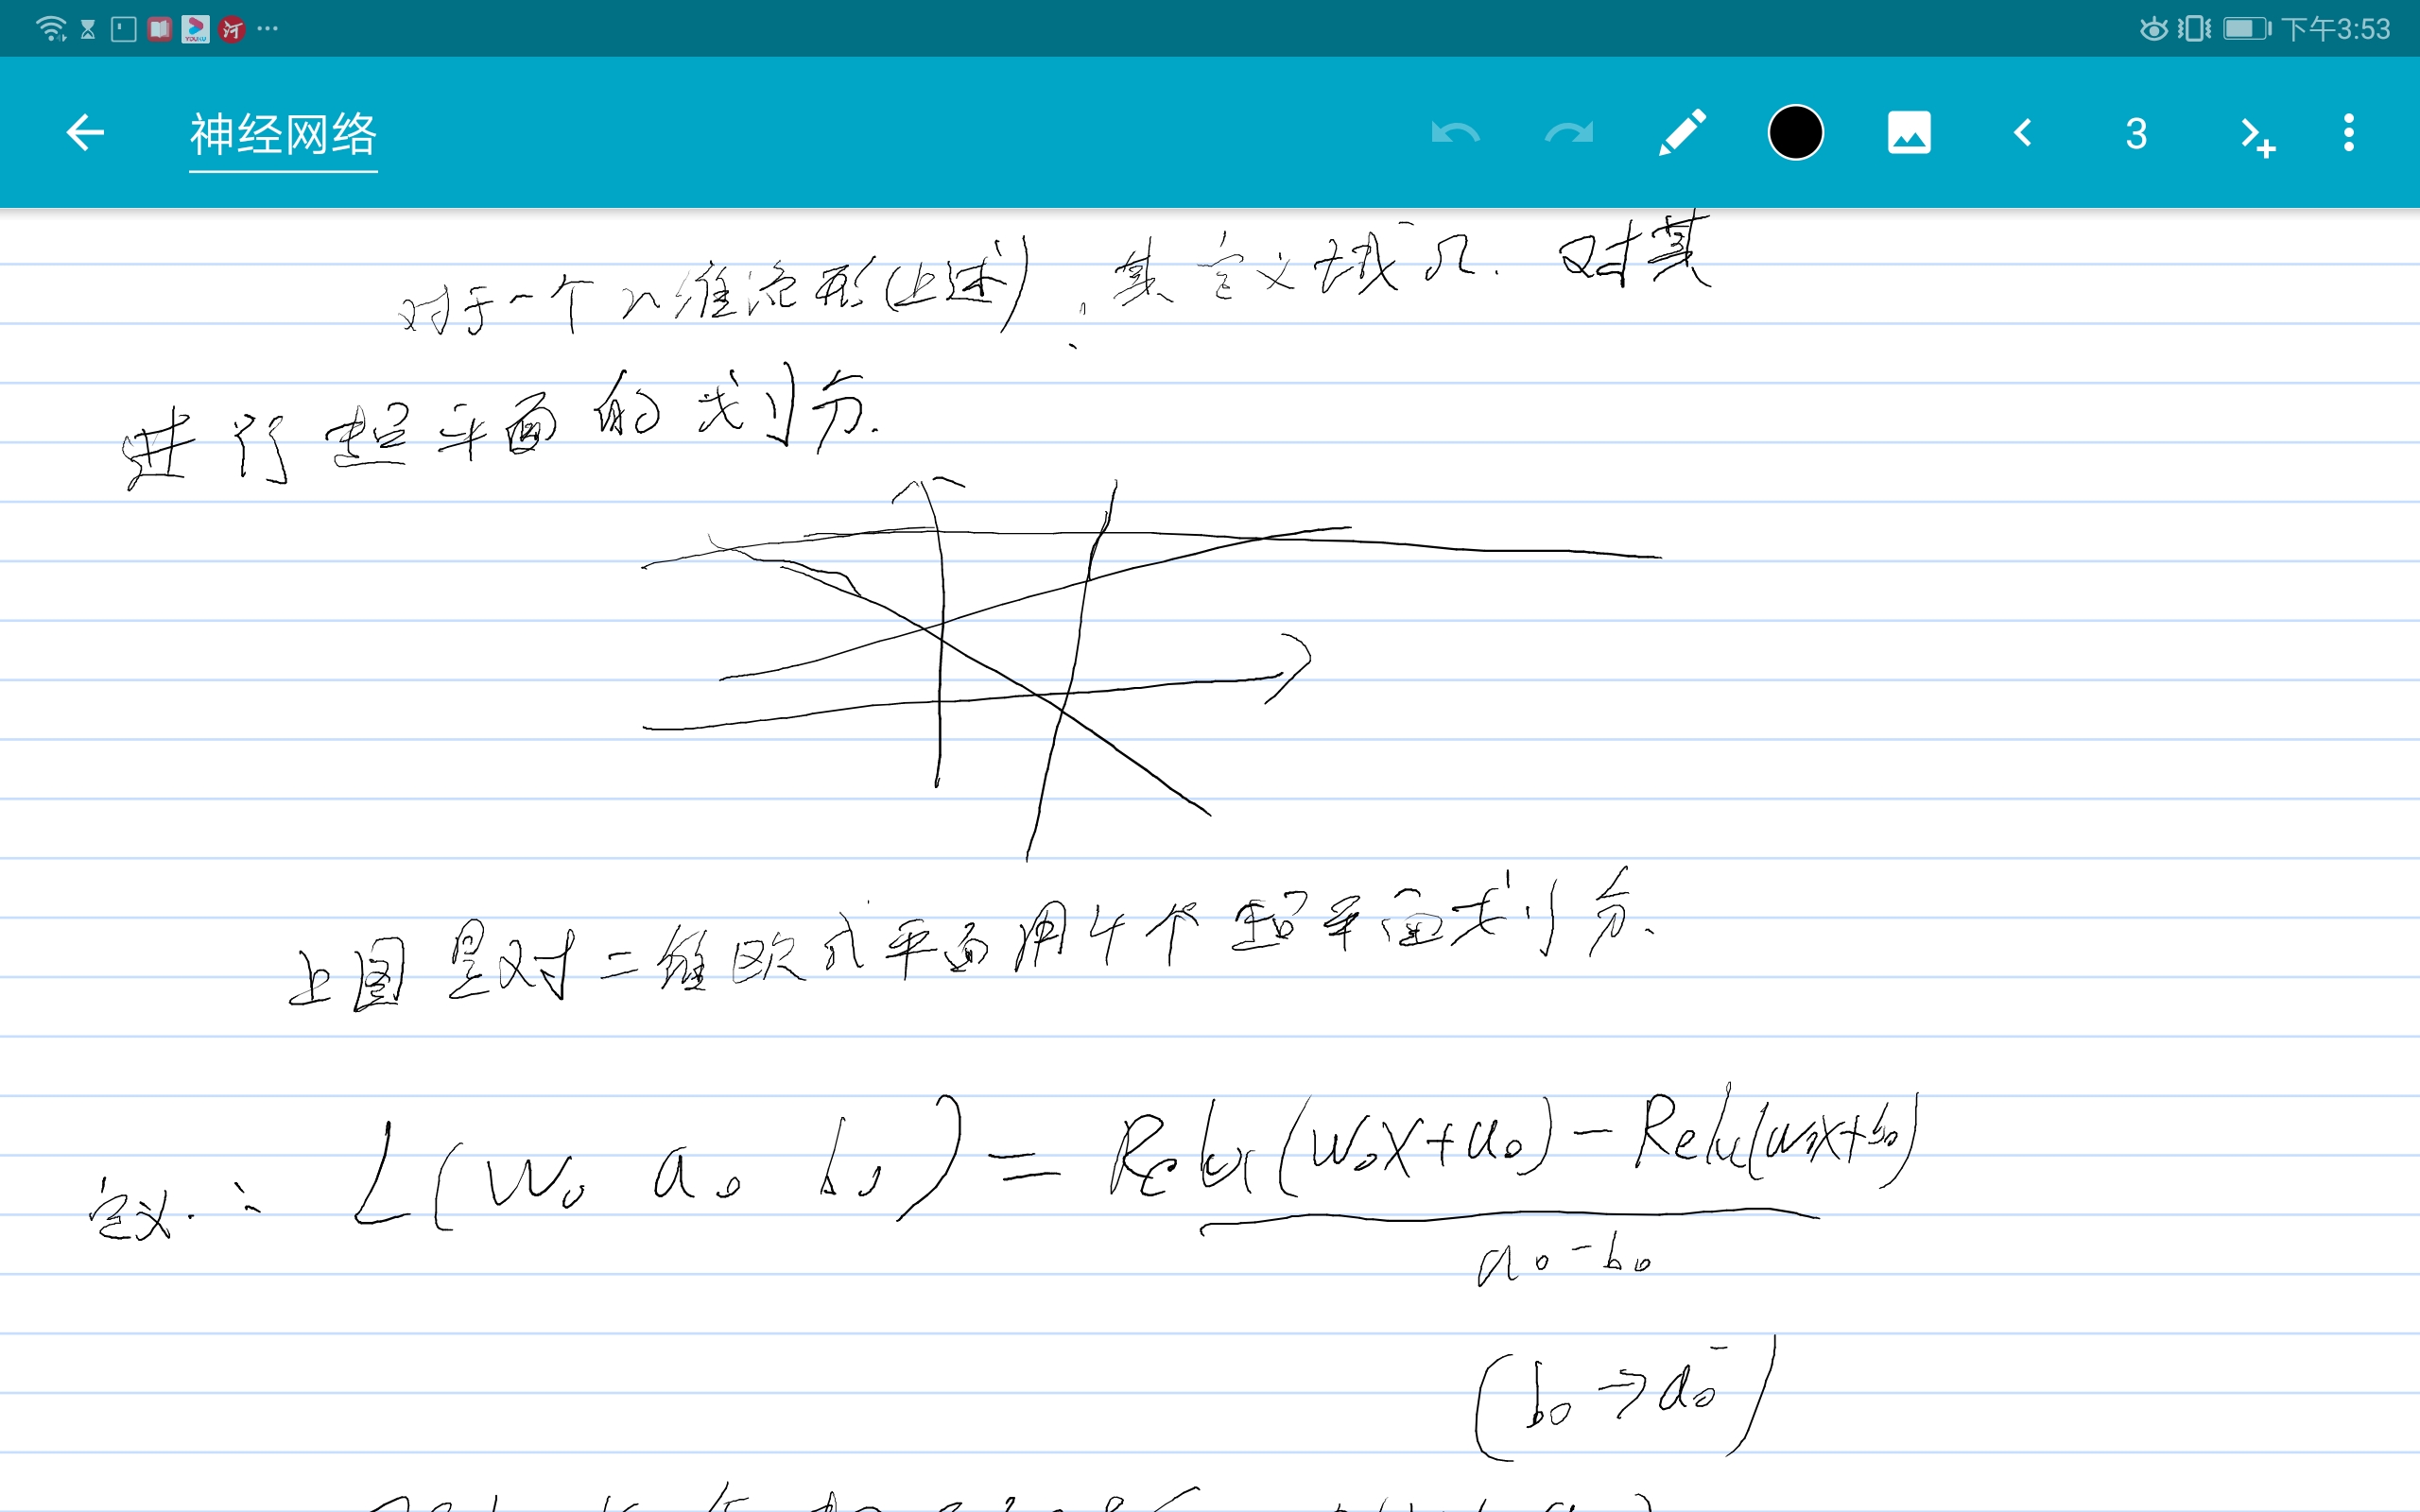 下午3:53
神经网络
3
对于一个n维流形(上述),其定义域Ω.对其
进行超平面的划分.
上图是对二维欧式平面用4个超平面划分.
定义: L(W₀ a₀ b₀) = Relu(W₀X+a₀) - Relu(W₀X+b₀)
a₀-b₀
(b₀→a₀⁻)